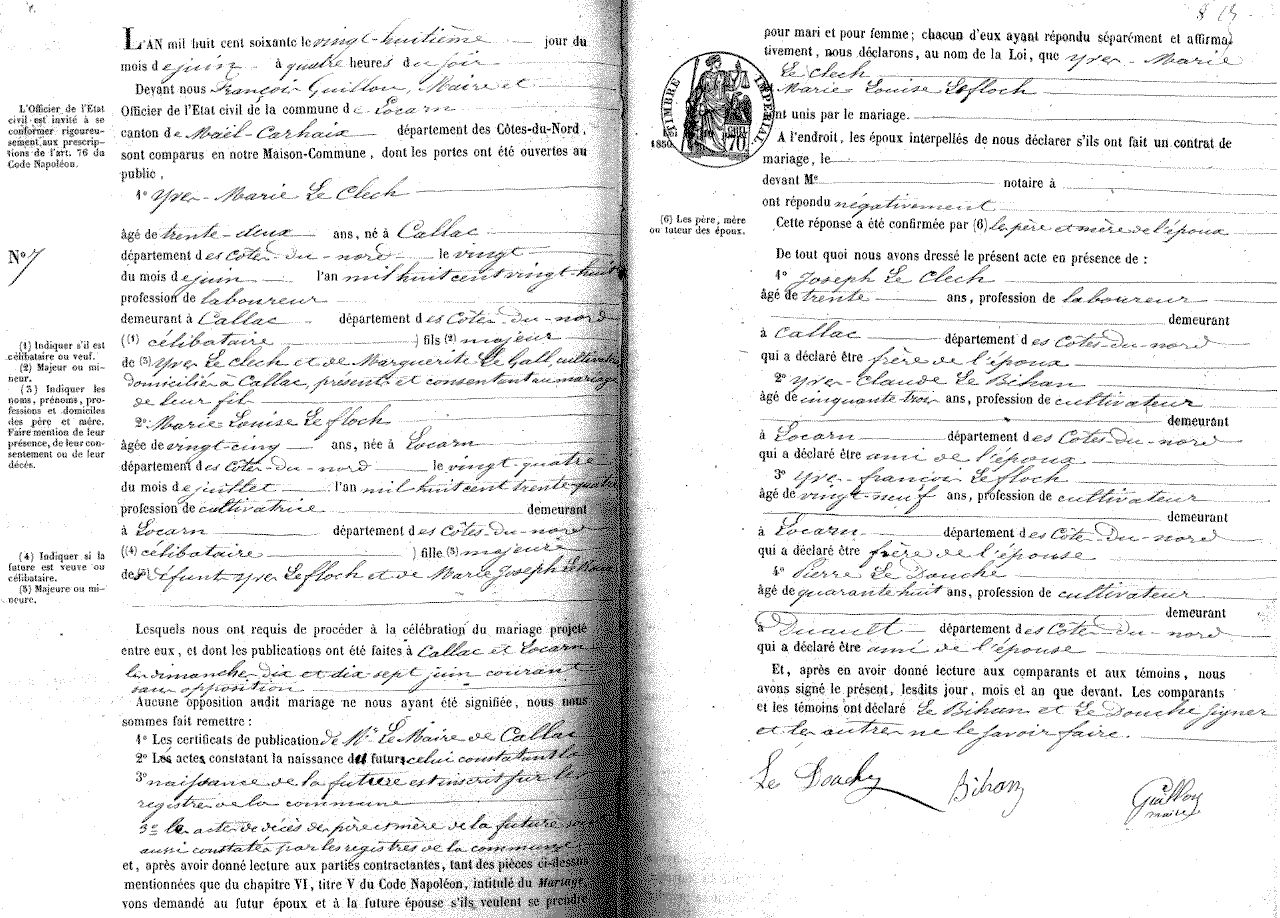 L'AN mil huit cent soixante le vingt-huitième jour du
mois de juin à quatre heures du soir
Devant nous François Guillou, Maire et
Officier de l'Etat civil de la commune de Locarn
canton de Maël-Carhaix département des Côtes-du-Nord,
sont comparus en notre Maison-Commune, dont les portes ont été ouvertes au
public,
1º Yves-Marie Le Clech
âgé de trente-deux ans, né à Callac
département des Côtes-du-nord le vingt
du mois de juin l'an mil huit cent vingt huit
profession de laboureur
demeurant à Callac département des Côtes-du-nord
((1) célibataire ) fils (2) majeur
de (3) Yves Le Clech et de Marguerite Le Gall, cultivateurs
domiciliés à Callac, présents et consentant au mariage
de leur fils
2º Marie Louise Le floch
âgée de vingt-cinq ans, née à Locarn
département des Côtes-du-nord le vingt-quatre
du mois de juillet l'an mil huit cent trente-quatre
profession de cultivatrice demeurant
à Locarn département des Côtes-du-nord
((4) célibataire ) fille (5) majeure
des défunt Yves Le floch et de Marie Joseph Le
Lesquels nous ont requis de procéder à la célébration du mariage projeté
entre eux, et dont les publications ont été faites à Callac et Locarn
les dimanches dix et dix sept juin courant
sans opposition
Aucune opposition audit mariage ne nous ayant été signifiée, nous nous
sommes fait remettre :
1º Les certificats de publication de Mr Le Maire de Callac
2º Les actes constatant la naissance du futur celui constatant la
3º naissance de la future est inscrit sur les
registres de la commune
3º les actes de décès des père et mère de la future sont
aussi constatés par les registres de la commune
et, après avoir donné lecture aux parties contractantes, tant des pièces ci-dessus
mentionnées que du chapitre VI, titre V du Code Napoléon, intitulé du Mariage,
vons demandé au futur époux et à la future épouse s'ils veulent se prendre
L'Officier de l'Etat
civil est invité à se
conformer rigoureu-
sement aux prescrip-
tions de l'art. 76 du
Code Napoléon.
Nº 7
(1) Indiquer s'il est
célibataire ou veuf.
(2) Majeur ou mi-
neur.
(3) Indiquer les
noms, prénoms, pro-
fessions et domiciles
des père et mère.
Faire mention de leur
présence, de leur con-
sentement ou de leur
décés.
(4) Indiquer si la
future est veuve ou
célibataire.
(5) Majeure ou mi-
neure.
pour mari et pour femme; chacun d'eux ayant répondu séparément et affirma
tivement, nous déclarons, au nom de la Loi, que Yves-Marie
Le Clech
Marie Louise Le floch
ont unis par le mariage.
TIMBRE IMPERIAL
1850
A l'endroit, les époux interpellés de nous déclarer s'ils ont fait un contrat de
mariage, le
devant Me notaire à
ont répondu négativement
Cette réponse a été confirmée par (6) le père et mère de l'époux
(6) Les père, mère
ou tuteur des époux.
De tout quoi nous avons dressé le présent acte en présence de :
1º Joseph Le Clech
âgé de trente ans, profession de laboureur
demeurant
à Callac département des Côtes-du-nord
qui a déclaré être frère de l'époux
2º Yves-Claude Le Bihan
âgé de cinquante-trois ans, profession de cultivateur
demeurant
à Locarn département des Côtes-du-nord
qui a déclaré être ami de l'époux
3º Yves-françois Le floch
âgé de vingt-neuf ans, profession de cultivateur
demeurant
à Locarn département des Côtes-du-nord
qui a déclaré être frère de l'épouse
4º Pierre Le Douche
âgé de quarante huit ans, profession de cultivateur
demeurant
à Duault département des Côtes-du-nord
qui a déclaré être ami de l'épouse
Et, après en avoir donné lecture aux comparants et aux témoins, nous
avons signé le présent, lesdits jour, mois et an que devant. Les comparants
et les témoins ont déclaré Le Bihan et Le Douche signer
et les autres ne le savoir faire.
Bihan
Guillou
maire